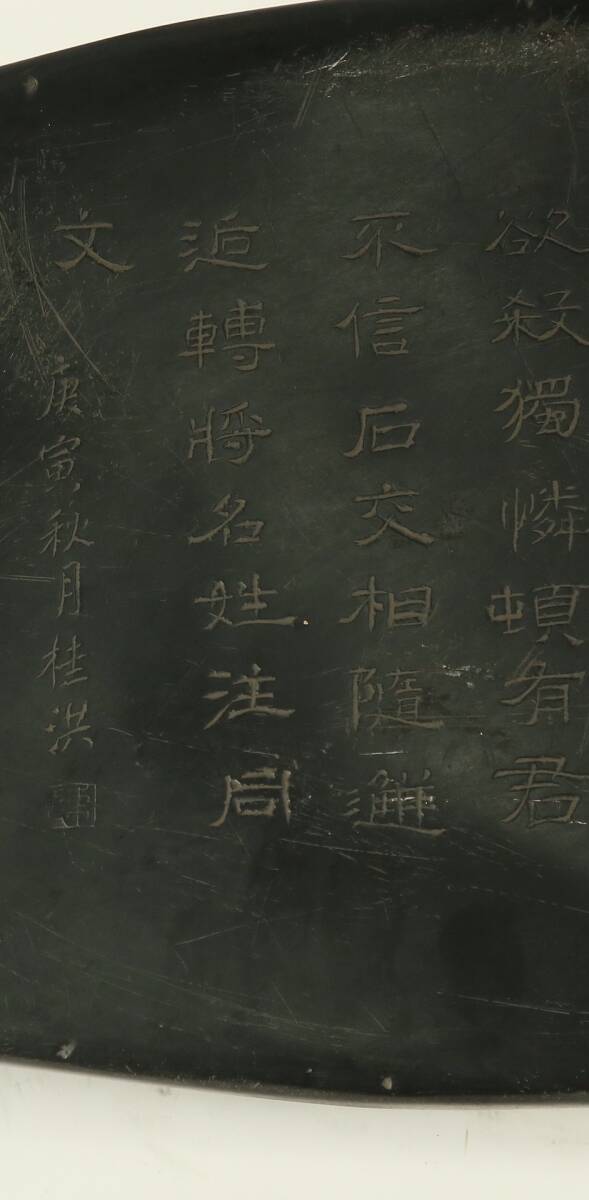 欲殺獨憐頓有君
不信石交相隨
逅轉將名姓注同
文
庚寅秋月桂洪